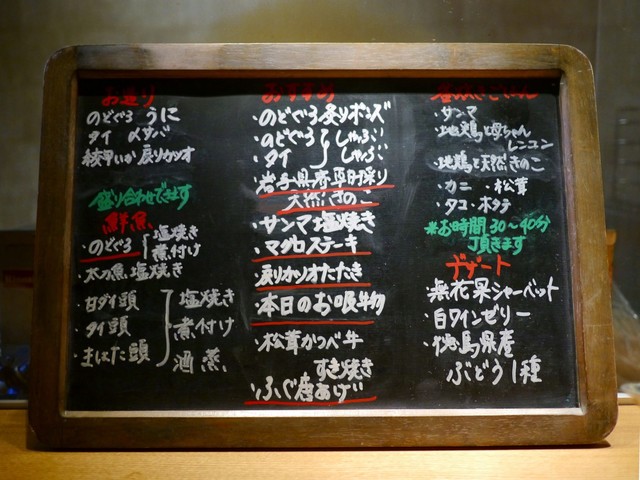 お造り
のどぐろ うに
タイ 〆サバ
戻りカツオ
盛り合わせできます
鮮魚
・のどぐろ 塩焼き
煮付け
・太刀魚塩焼き
・甘ダイ頭 塩焼き
・タイ頭 煮付け
・まはた頭 酒蒸
おすすめ
・のどぐろ炙りポンズ
・のどぐろ しゃぶ
・タイ しゃぶ
・岩手県産
天然きのこ
・サンマ塩焼き
・マグロステーキ
・戻りカツオたたき
・本日のお吸物
・松茸かつべ牛
すき焼き
・ふぐ唐あげ
・サンマ
・地鶏と
レンコン
・地鶏と天然きのこ
・カニ ・松茸
・タコ・ホタテ
※お時間30~40分
頂きます
デザート
・無花果シャーベット
・白ワインゼリー
・徳島県産
ぶどう1種